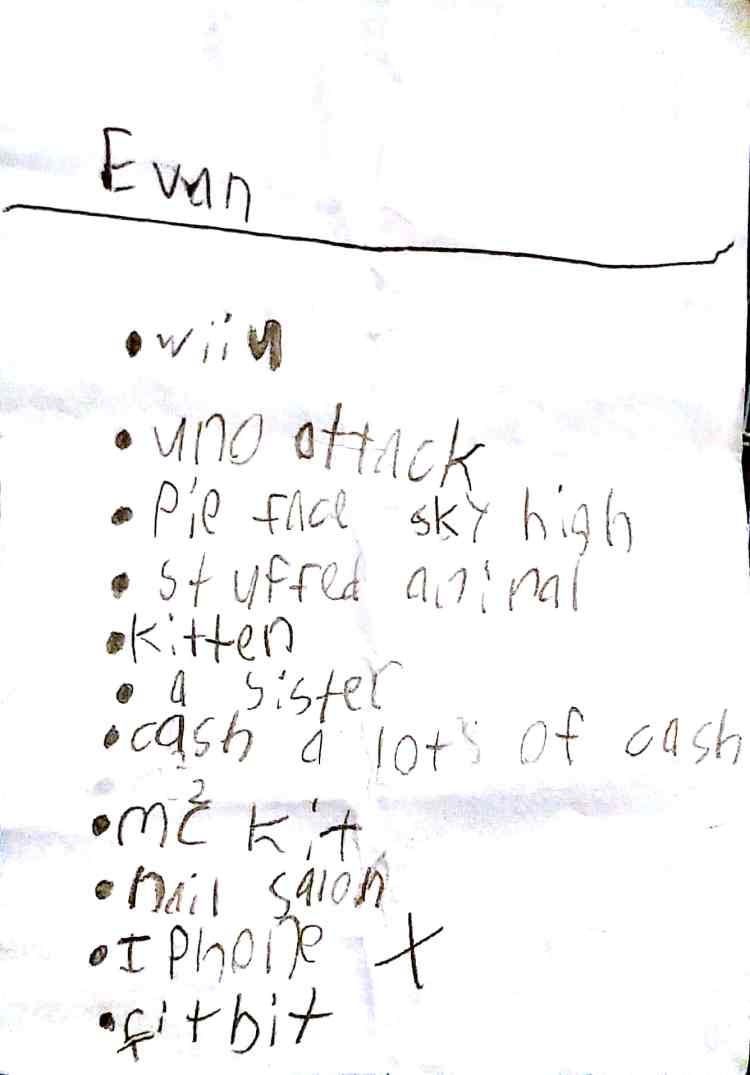 Evan
• wiiu
• uno attack
• Pie face sky high
• stuffed animal
• kitten
• a sister
• cash a lots of cash
• mc² kit
• nail salon
• I Phone X
• fitbit